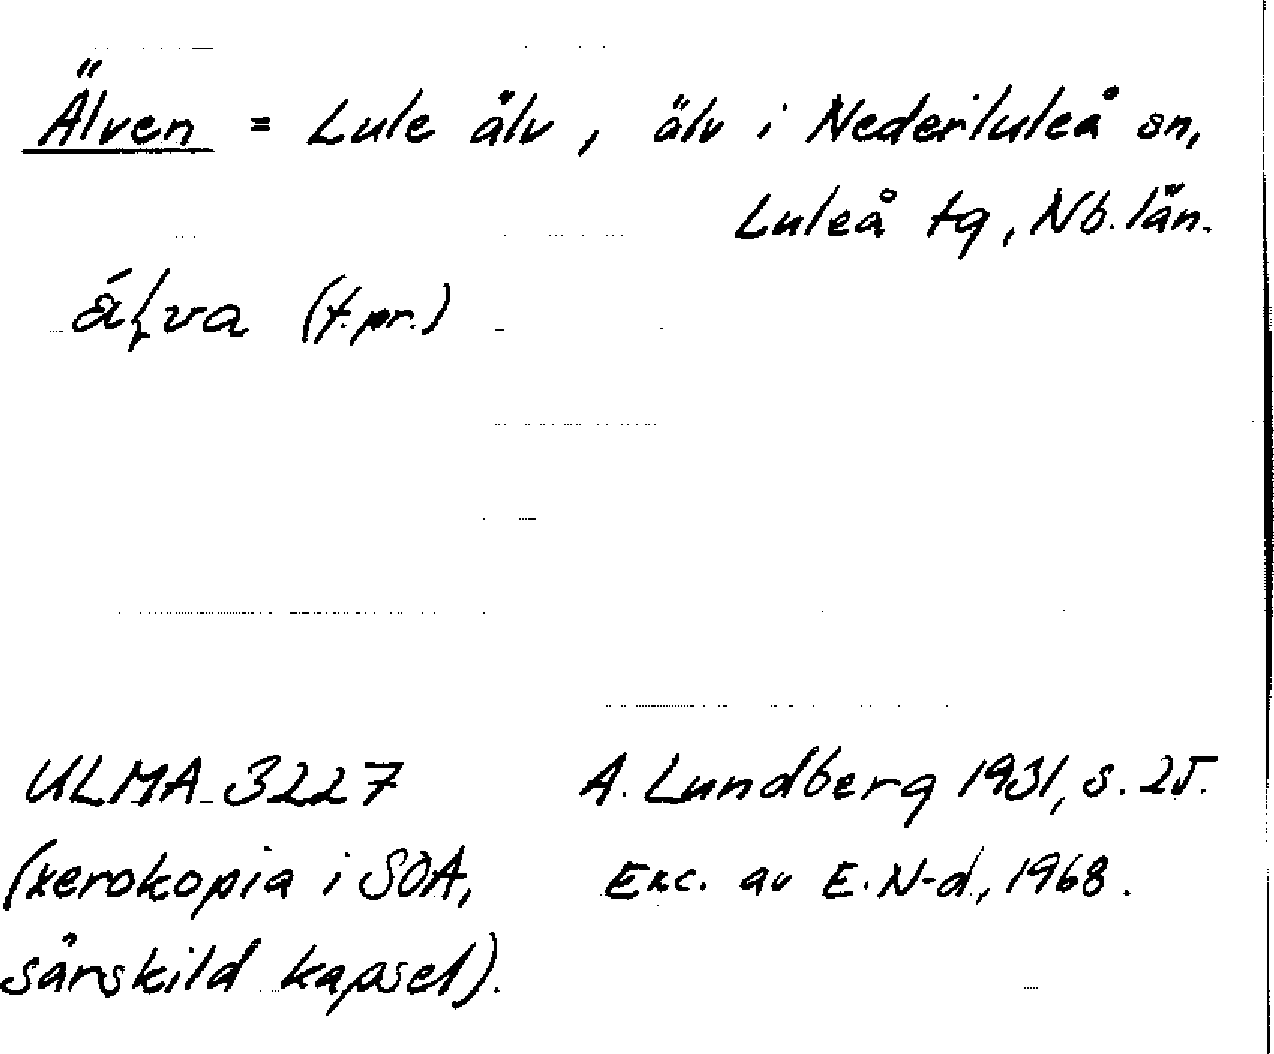 Älven = Lule älv, älv i Nederluleå sn,
Luleå tg, Nb. län.
(t.pr.)
ULMA 3227
(xerokopia i SOA,
särskild kapsel).
A. Lundberg 1931, s. 25.
Exc. av E. N-d., 1968.